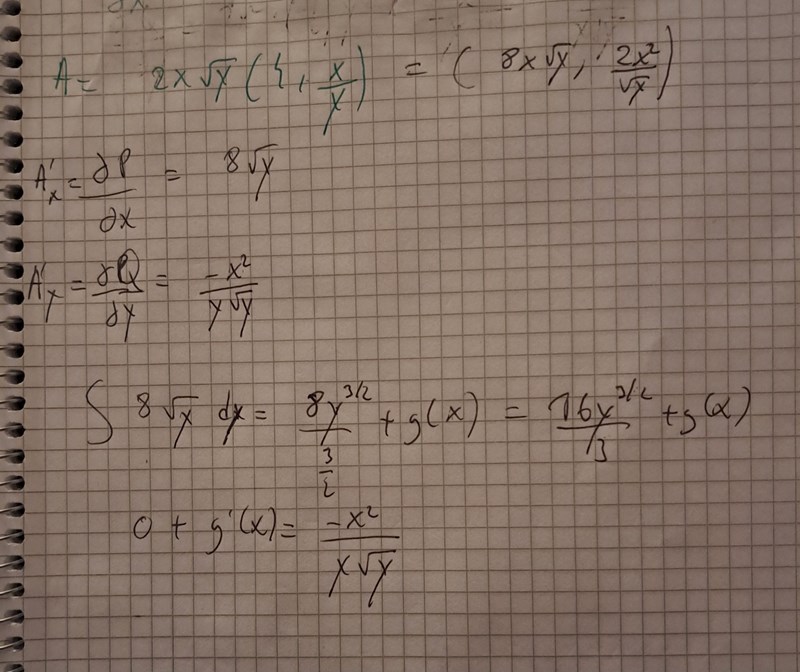 A = 2x√y (4, x/y) = (8x√y, 2x²/√y)
A'x = ∂P/∂x = 8√y
A'y = ∂Q/∂y = -x²/y√y
∫ 8√y dy = 8y^3/2 / 3/2 + g(x) = 16y^3/2 / 3 + g(x)
0 + g'(x) = -x²/y√y